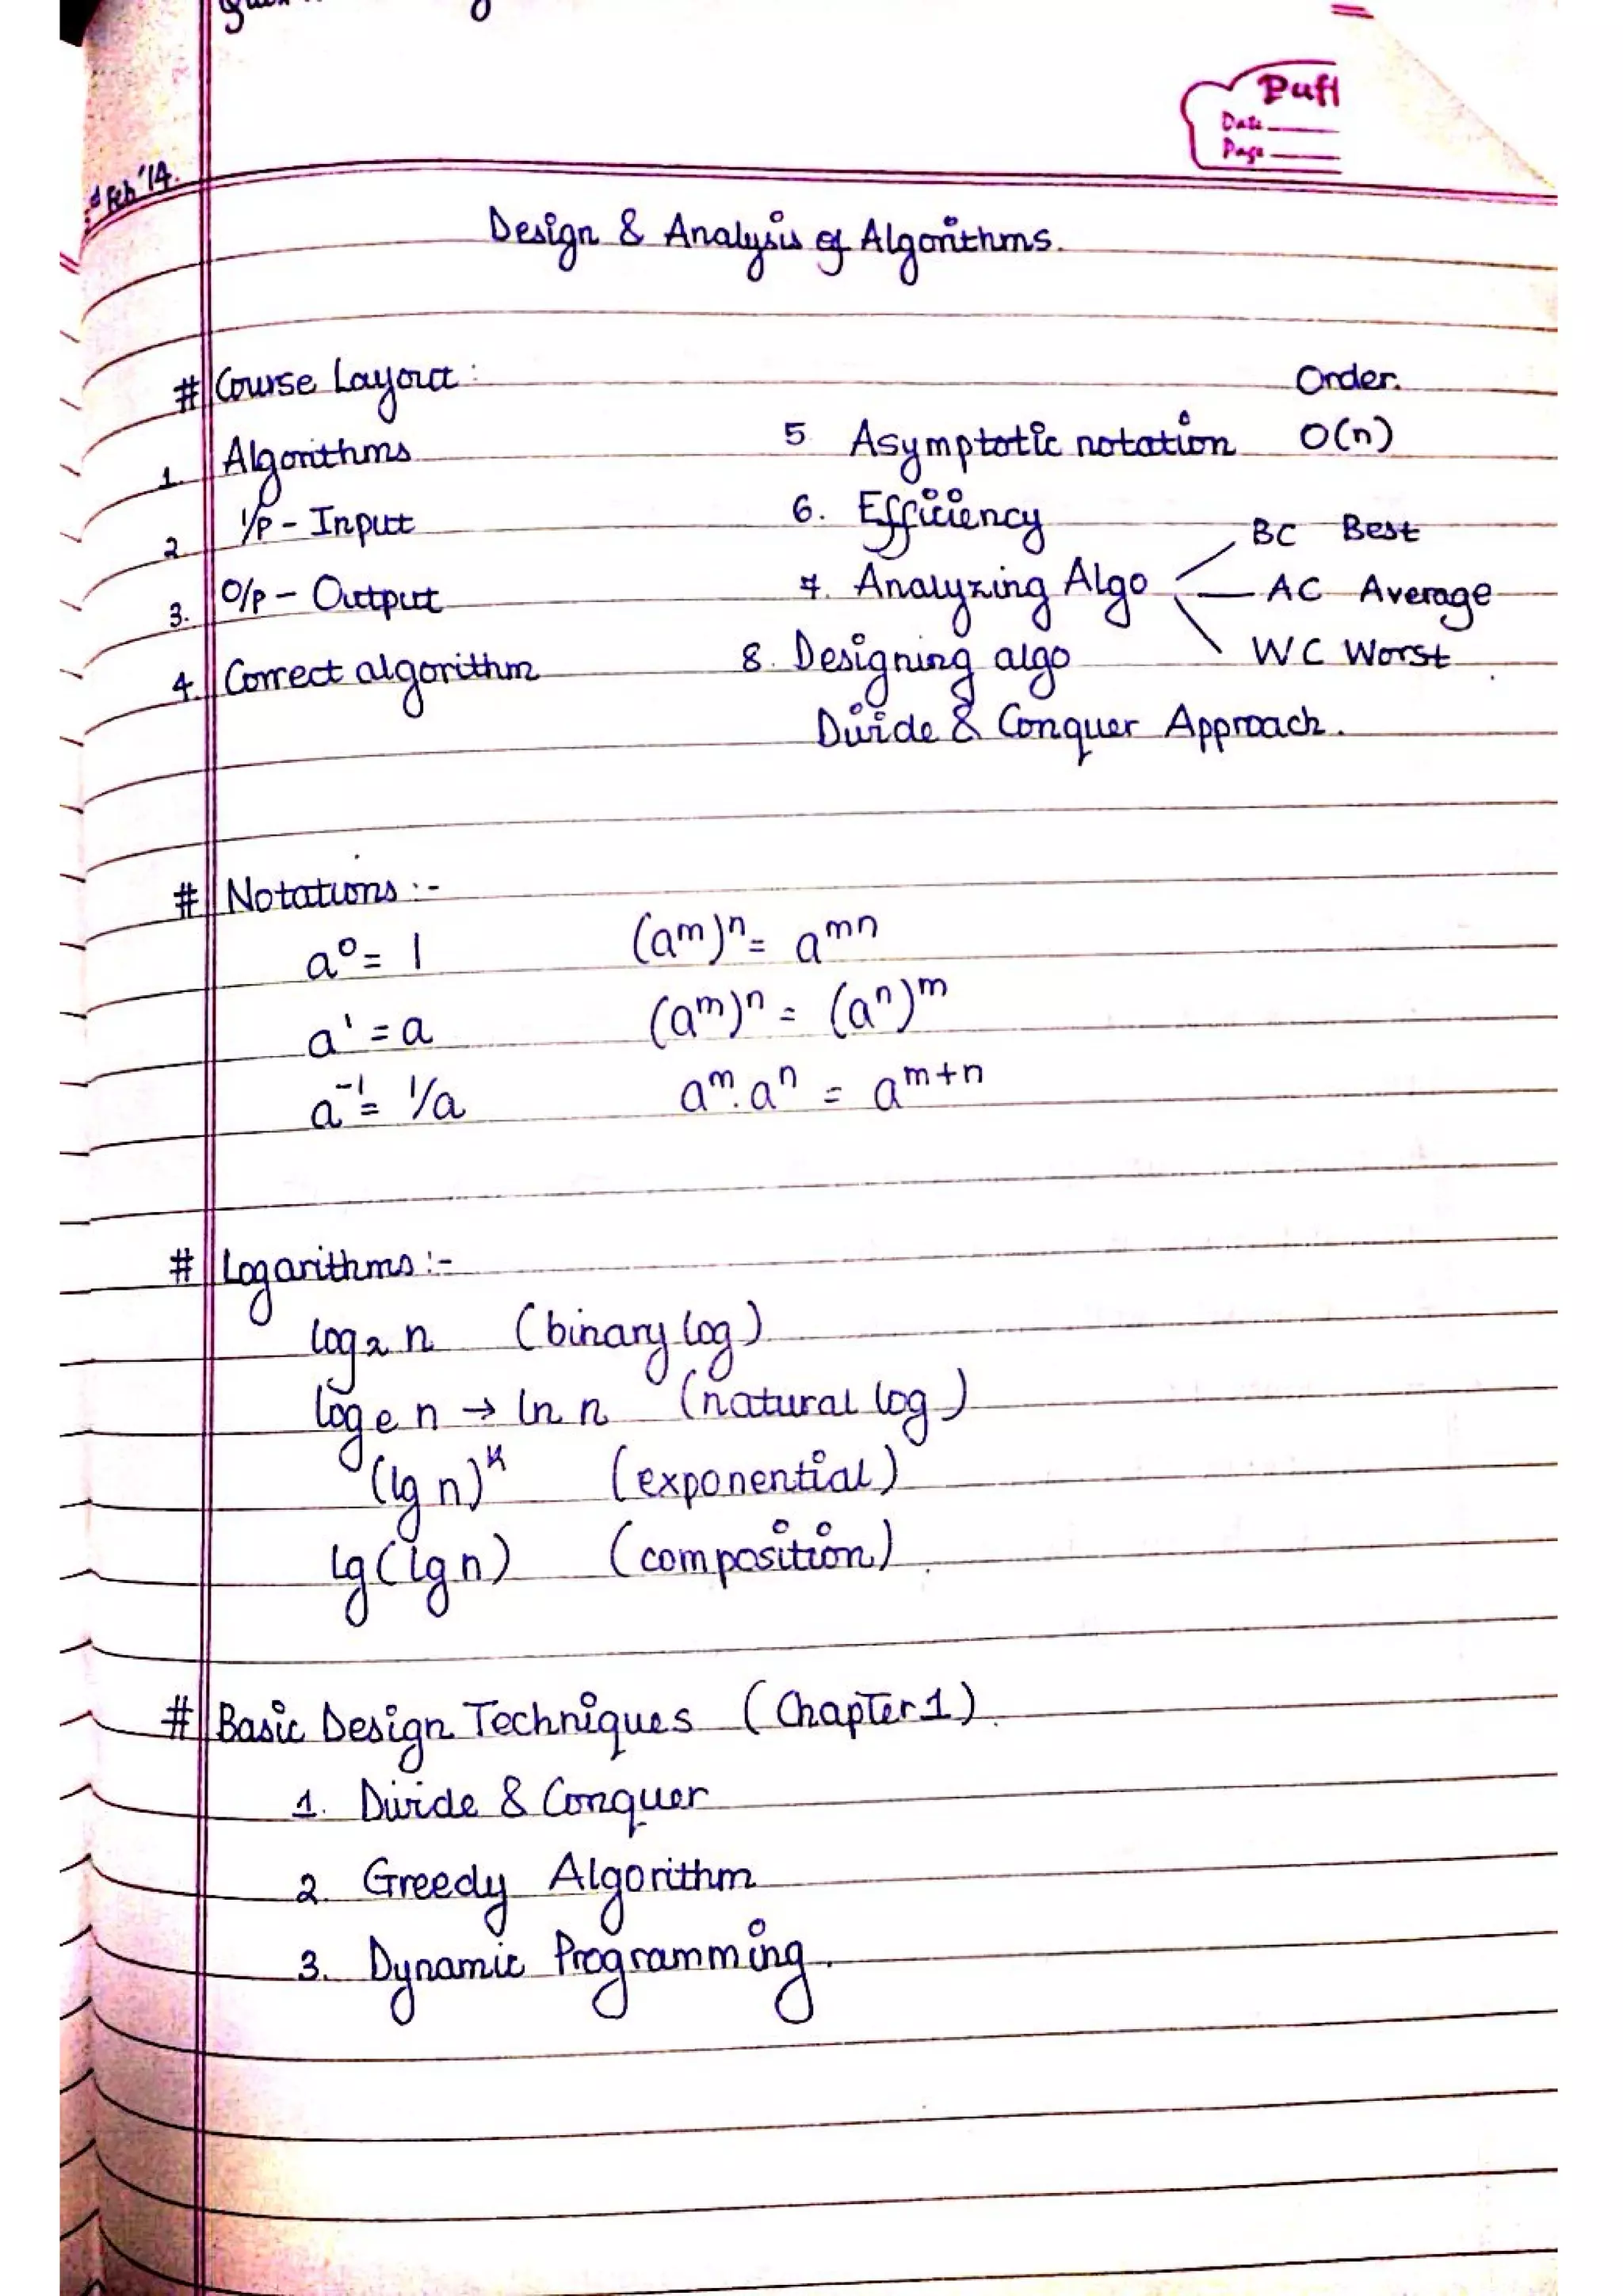 Puff
Date
Page
Feb '14.
Design & Analysis of Algorithms.
# Course Layout :
Order.
1. Algorithms
5 Asymptotic notation O(n)
2 I/P - Input
6. Efficiency
BC Best
3. O/P - Output
7. Analyzing Algo
AC Average
4. Correct algorithm
8. Designing algo
WC Worst
Divide & Conquer Approach.
# Notations :-
a⁰ = 1 (aᵐ)ⁿ = aᵐⁿ
a¹ = a (aᵐ)ⁿ = (aⁿ)ᵐ
a⁻¹ = 1/a aᵐ.aⁿ = aᵐ⁺ⁿ
# Logarithms :-
log₂ n (binary log)
logₑ n → ln n (natural log)
(lg n)ᵏ (exponential)
lg(lg n) (composition).
# Basic Design Techniques (Chapter 1).
1. Divide & Conquer
2. Greedy Algorithm
3. Dynamic Programming.